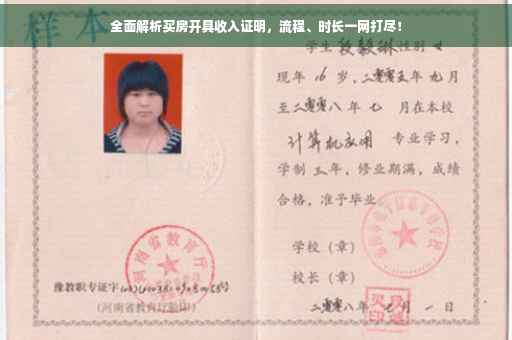 全面解析买房开具收入证明，流程、时长一网打尽！
样本
学生段毅琳性别女
现年16岁，二零零五年九月
至二零零八年七月在本校
计算机应用 专业学习，
学制三年，修业期满，成绩
合格，准予毕业
学校（章）
校长（章）
二零零八年七月一日
河南省教育厅
豫教职专证字
（河南省教育厅验印）